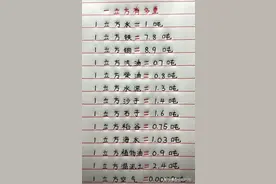 一立方有多重
1立方水=1.0吨
1立方铁=7.8吨
1立方铜=8.9吨
1立方汽油=0.7吨
1立方柴油=0.8吨
1立方水泥=1.3吨
1立方沙子=1.4吨
1立方石子=1.6吨
1立方稻谷=0.75吨
1立方海水=1.03吨
1立方植物油=0.9吨
1立方混泥土=2.4吨
1立方空气=